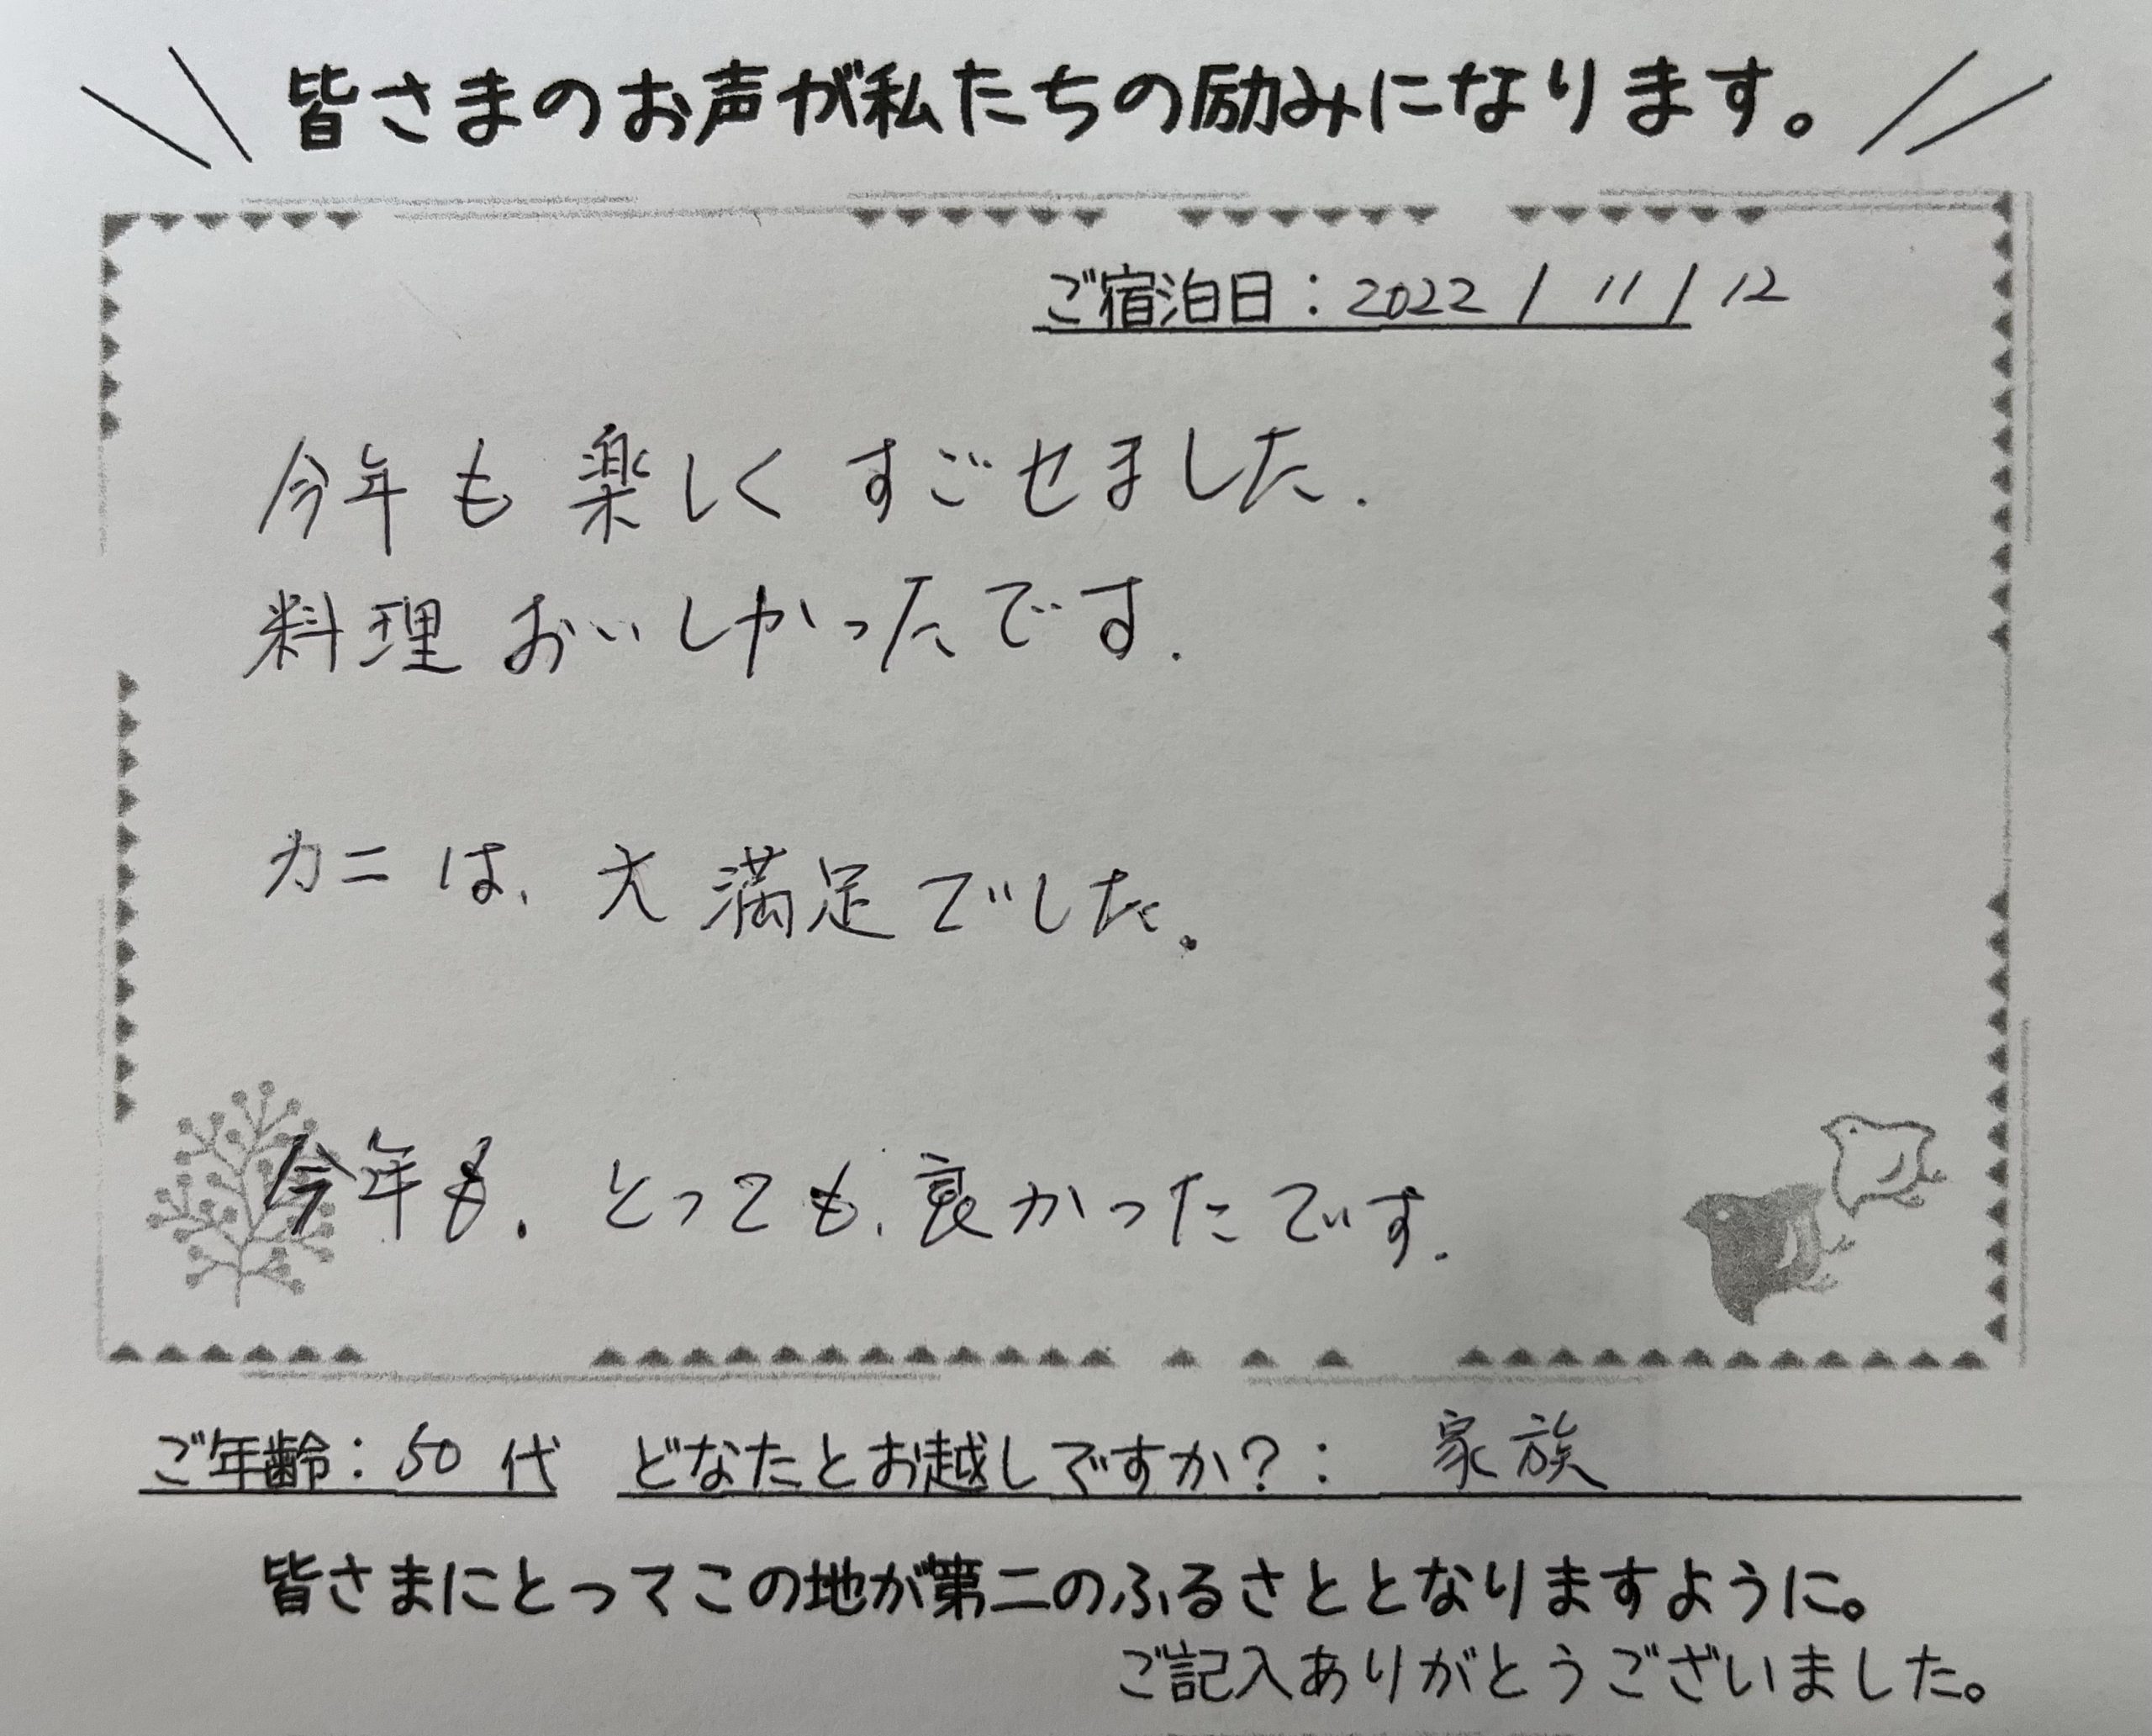 皆さまのお声が私たちの励みになります。
ご宿泊日：2022 / 11 / 12
今年も楽しくすごせました.
料理おいしかったです.
カニは、大満足でした。
今年も、とっても、良かったです.
ご年齢：50代 どなたとお越しですか?： 家族
皆さまにとってこの地が第二のふるさととなりますように。
ご記入ありがとうございました。